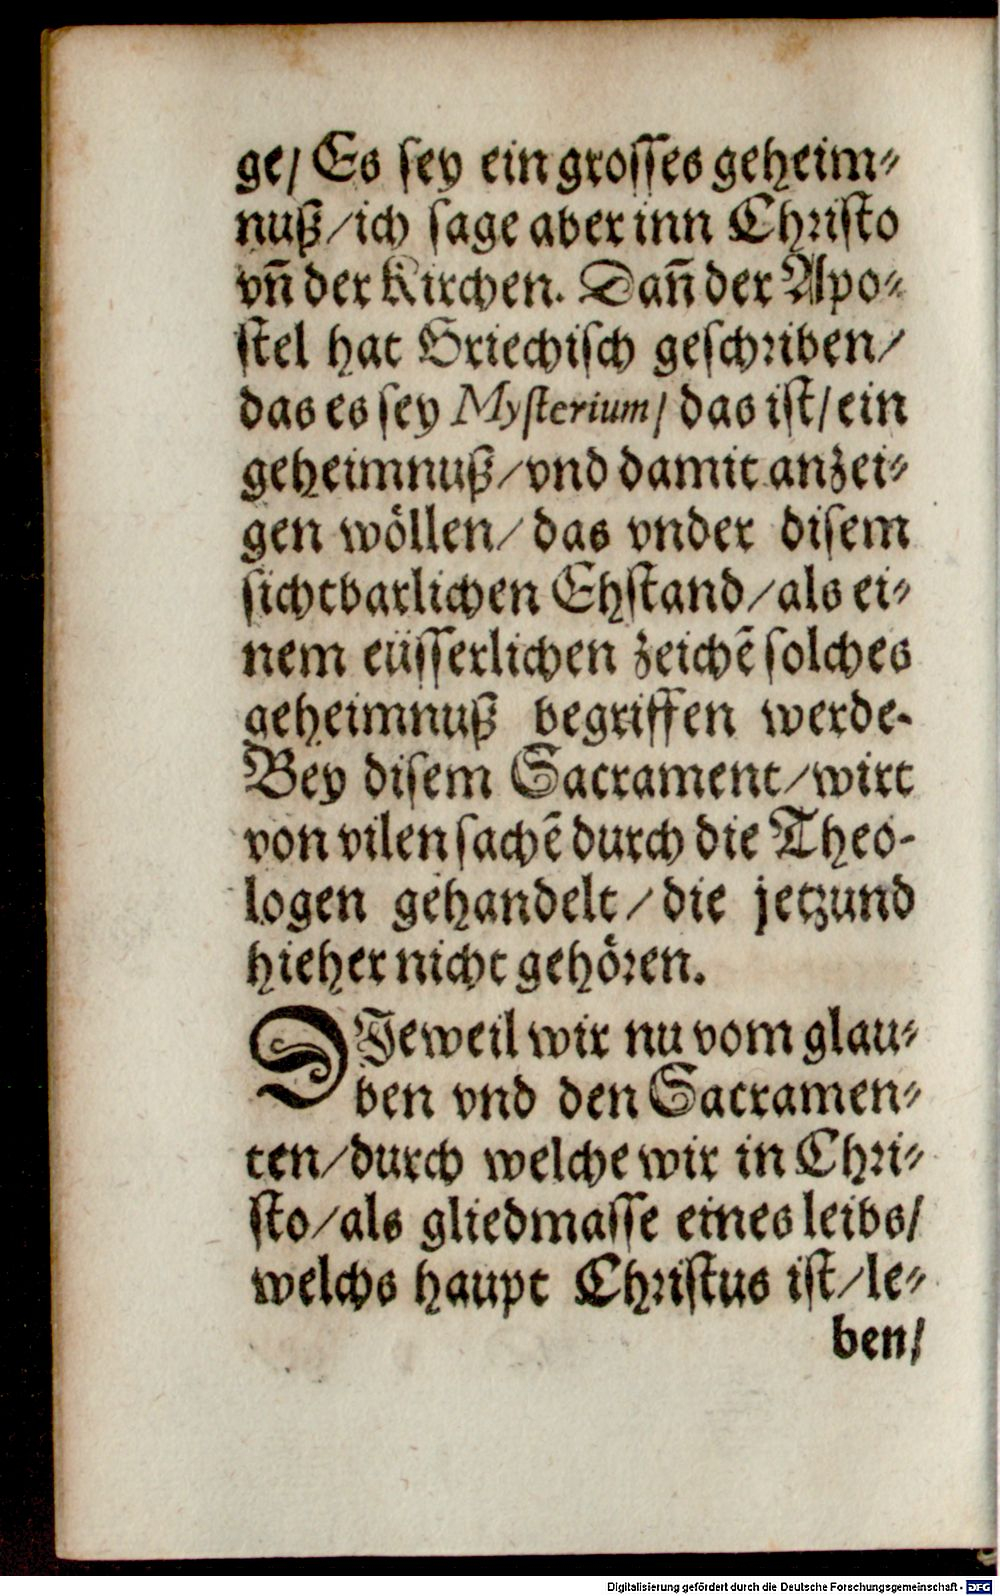 ge/ Es sey ein grosses geheim⸗
nuß/ich sage aber inn Christo
vn̄ der Kirchen. Dan̄ der Apo⸗
stel hat Griechisch geschriben/
das es sey Mysterium/ das ist/ein
geheimnuß/vnd damit anzei⸗
gen wöllen/das vnder disem
sichtbarlichen Ehstand/als ei⸗
nem eüsserlichen zeichē solches
geheimnuß begriffen werde.
Bey disem Sacrament/wirt
von vilen sachē durch die Theo⸗
logen gehandelt/die jetzund
hieher nicht gehören.
DJeweil wir nu vom glau⸗
ben vnd den Sacramen⸗
ten/durch welche wir in Chri⸗
sto/als gliedmasse eines leibs/
welchs haupt Christus ist/le⸗
ben/
Digitalisierung gefördert durch die Deutsche Forschungsgemeinschaft - DFG